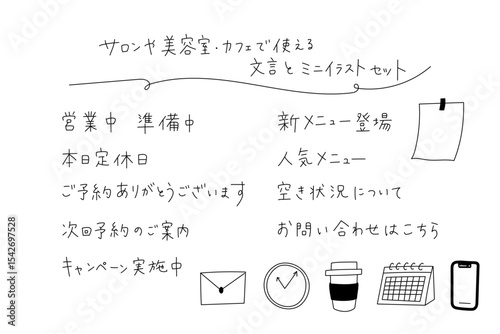 サロンや美容室・カフェで使える
文言とミニイラストセット
営業中 準備中
本日定休日
ご予約ありがとうございます
次回予約のご案内
キャンペーン実施中
新メニュー登場
人気メニュー
空き状況について
お問い合わせはこちら
Adobe Stock | #1542697528